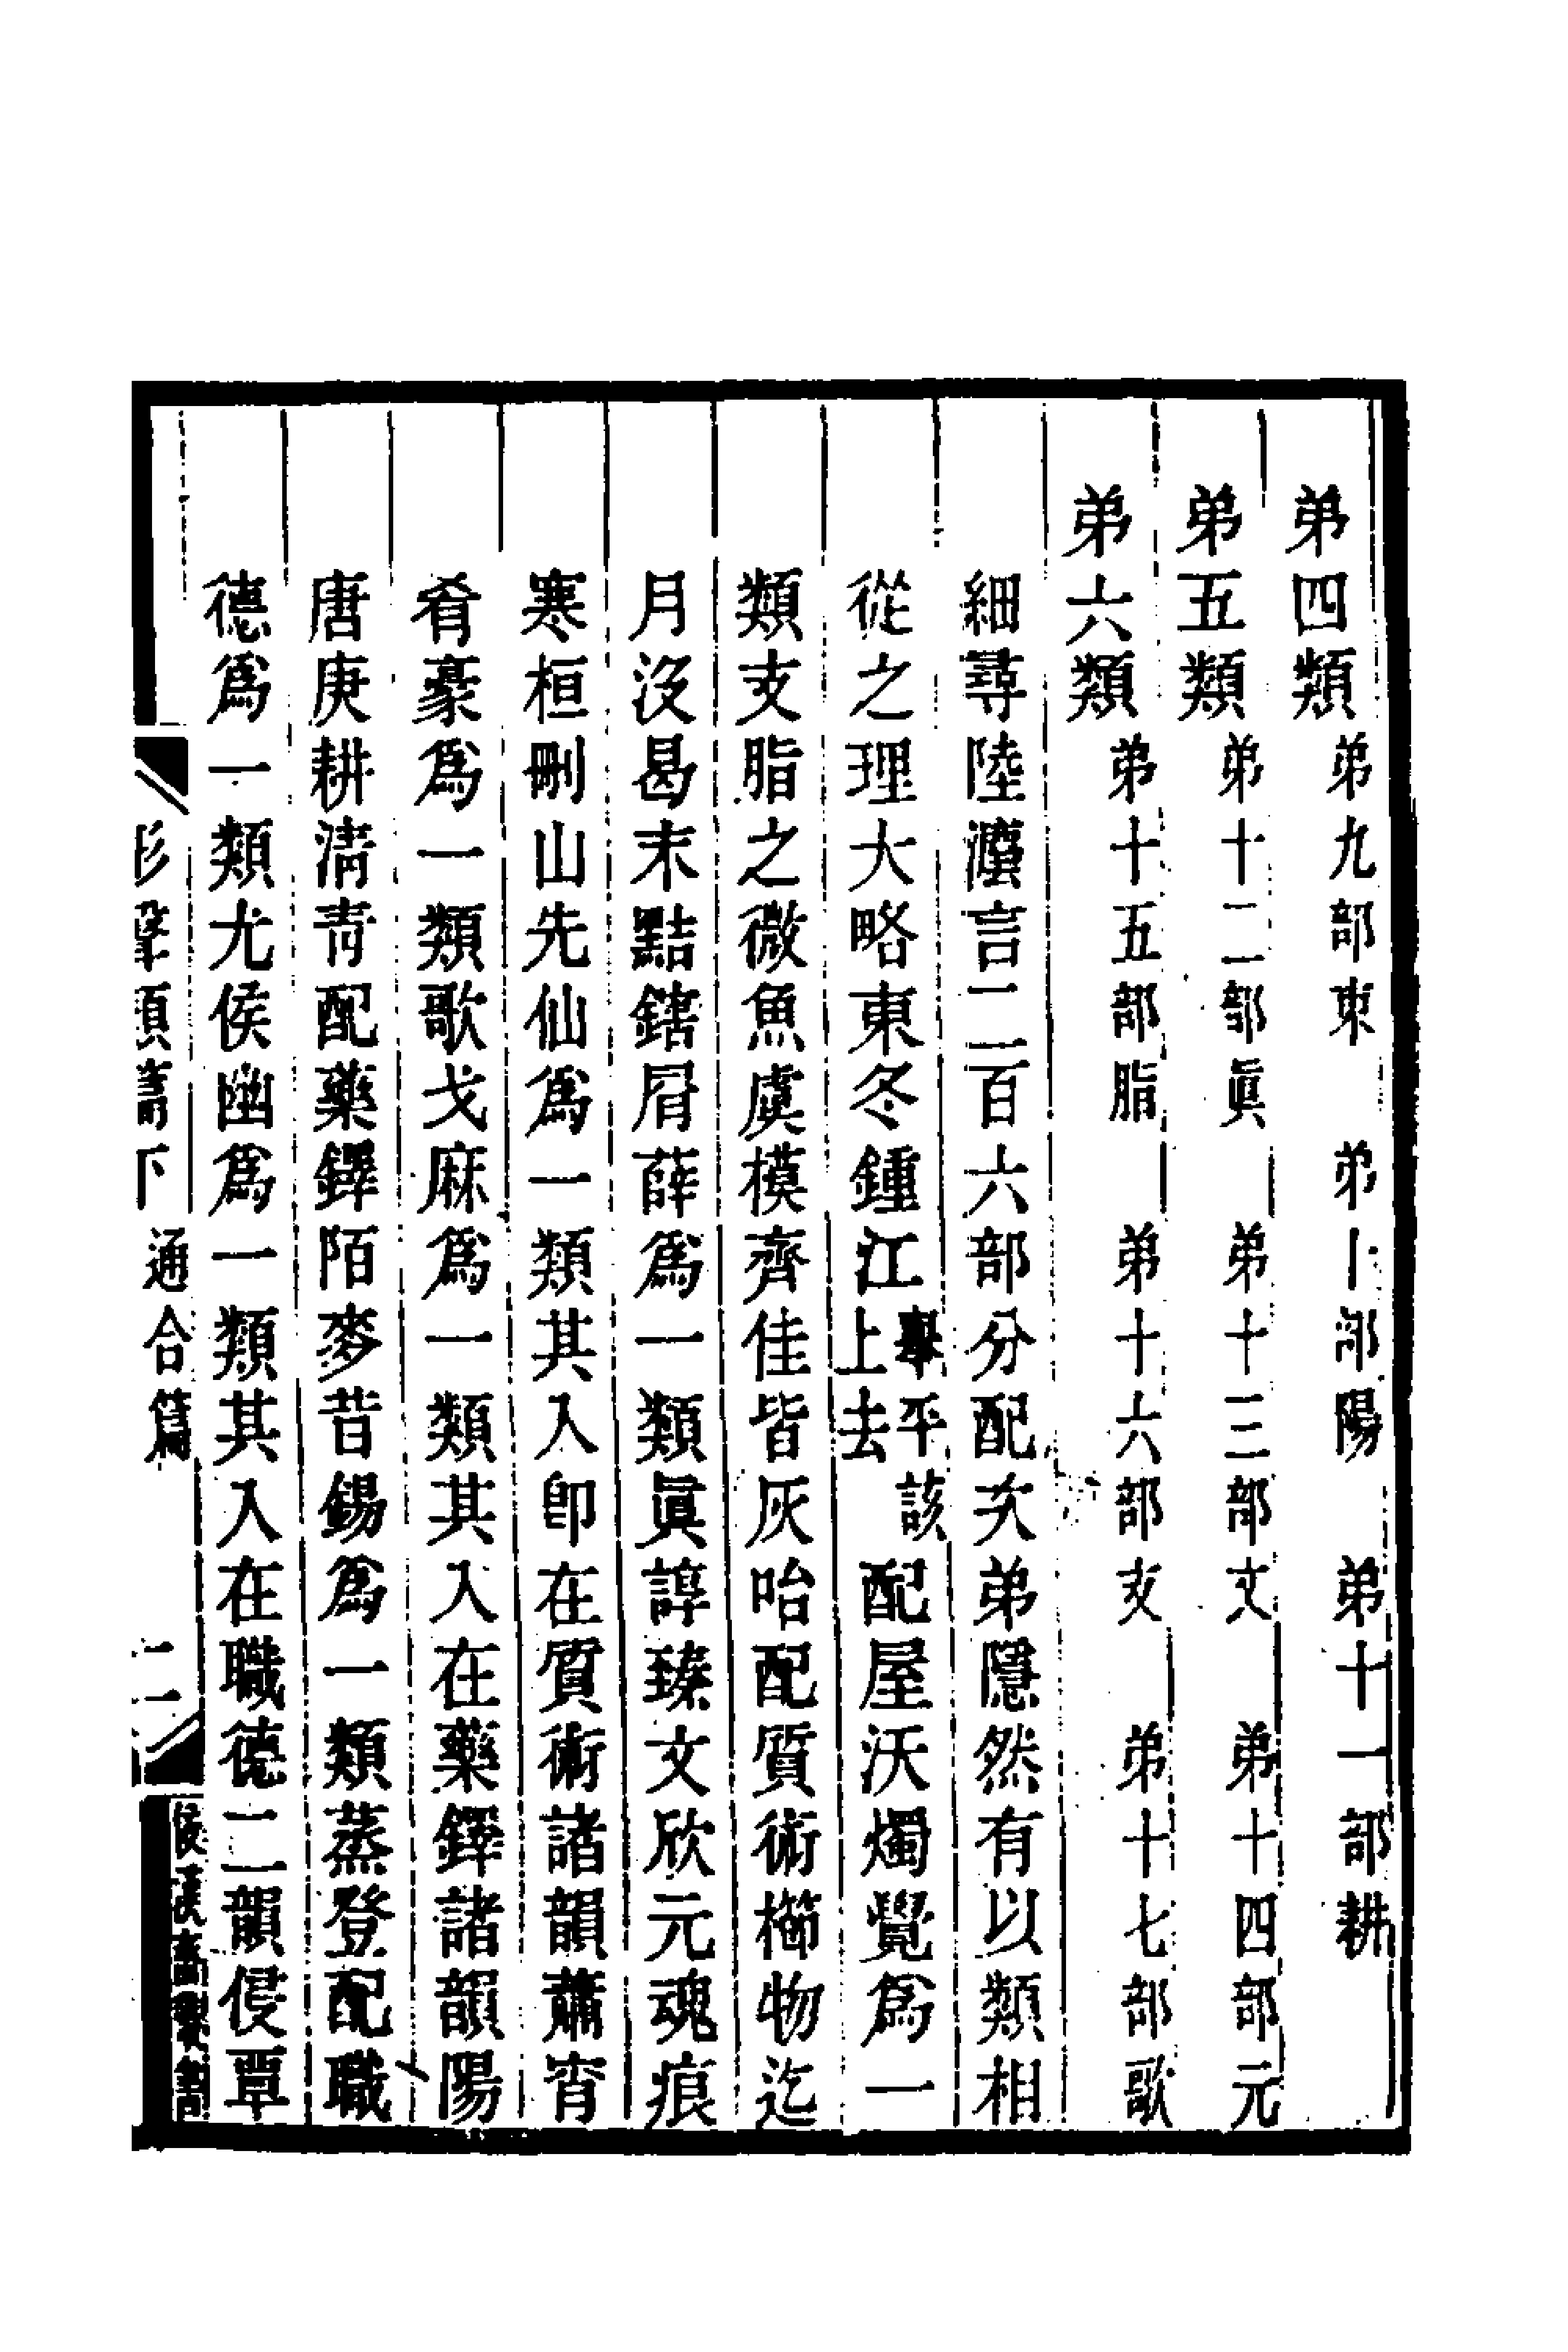 弟四類 弟九部東 弟十部陽 弟十一部耕
弟五類 弟十二部眞 弟十三部文 弟十四部元
弟六類 弟十五部脂 弟十六部支 弟十七部歌
細尋陸灋言二百六部分配次弟隱然有以類相
從之理大略東冬鍾江舉平該上去配屋沃燭覺爲一
類支脂之微魚虞模齊佳皆灰咍配質術櫛物迄
月沒曷末黠鎋屑薛爲一類眞諄臻文欣元魂痕
寒桓刪山先仙爲一類其入卽在質術諸韻蕭宵
肴豪爲一類歌戈麻爲一類其入在藥鐸諸韻陽
唐庚耕淸靑配藥鐸陌麥昔錫爲一類蒸登配職
德爲一類尤侯幽爲一類其入在職德二韻侵覃
形聲類篇下 通合篇 二